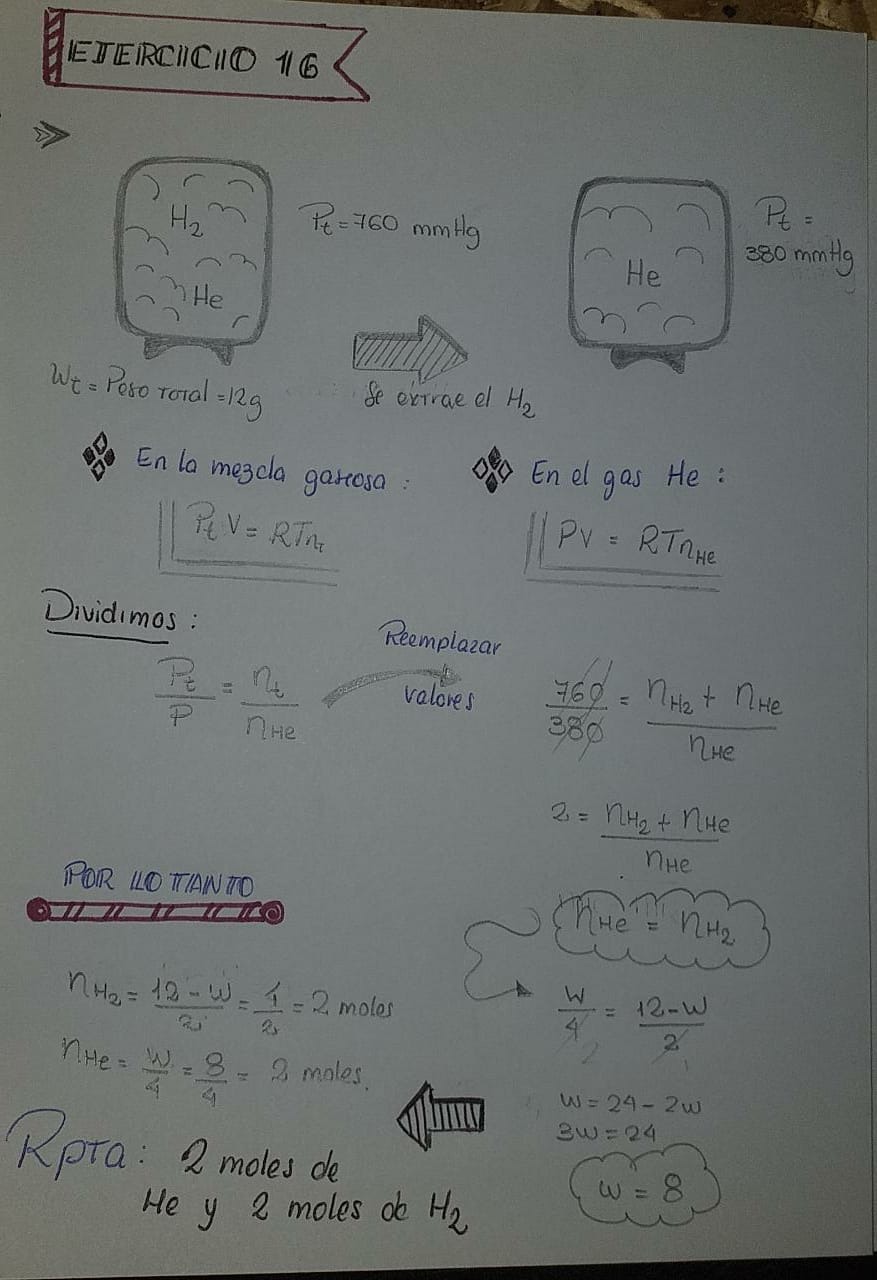 EJERCICIO 16
H₂
He
Pt = 760 mmHg
He
Pt =
380 mmHg
Wt = Peso Total = 12g
Se extrae el H₂
En la mezcla gaseosa :
Pt V = RTnt
En el gas He :
PV = RTnHe
Dividimos :
Pt/P = nt/nHe
Reemplazar
valores
760/380 = nH₂ + nHe/nHe
2 = nH₂ + nHe/nHe
nHe = nH₂
W/4 = 12-W/2
W = 24 - 2W
3W = 24
W = 8
POR LO TANTO
nH₂ = 12 - W/2 = 4/2 = 2 moles
nHe = W/4 = 8/4 = 2 moles.
Rpta : 2 moles de
He y 2 moles de H₂